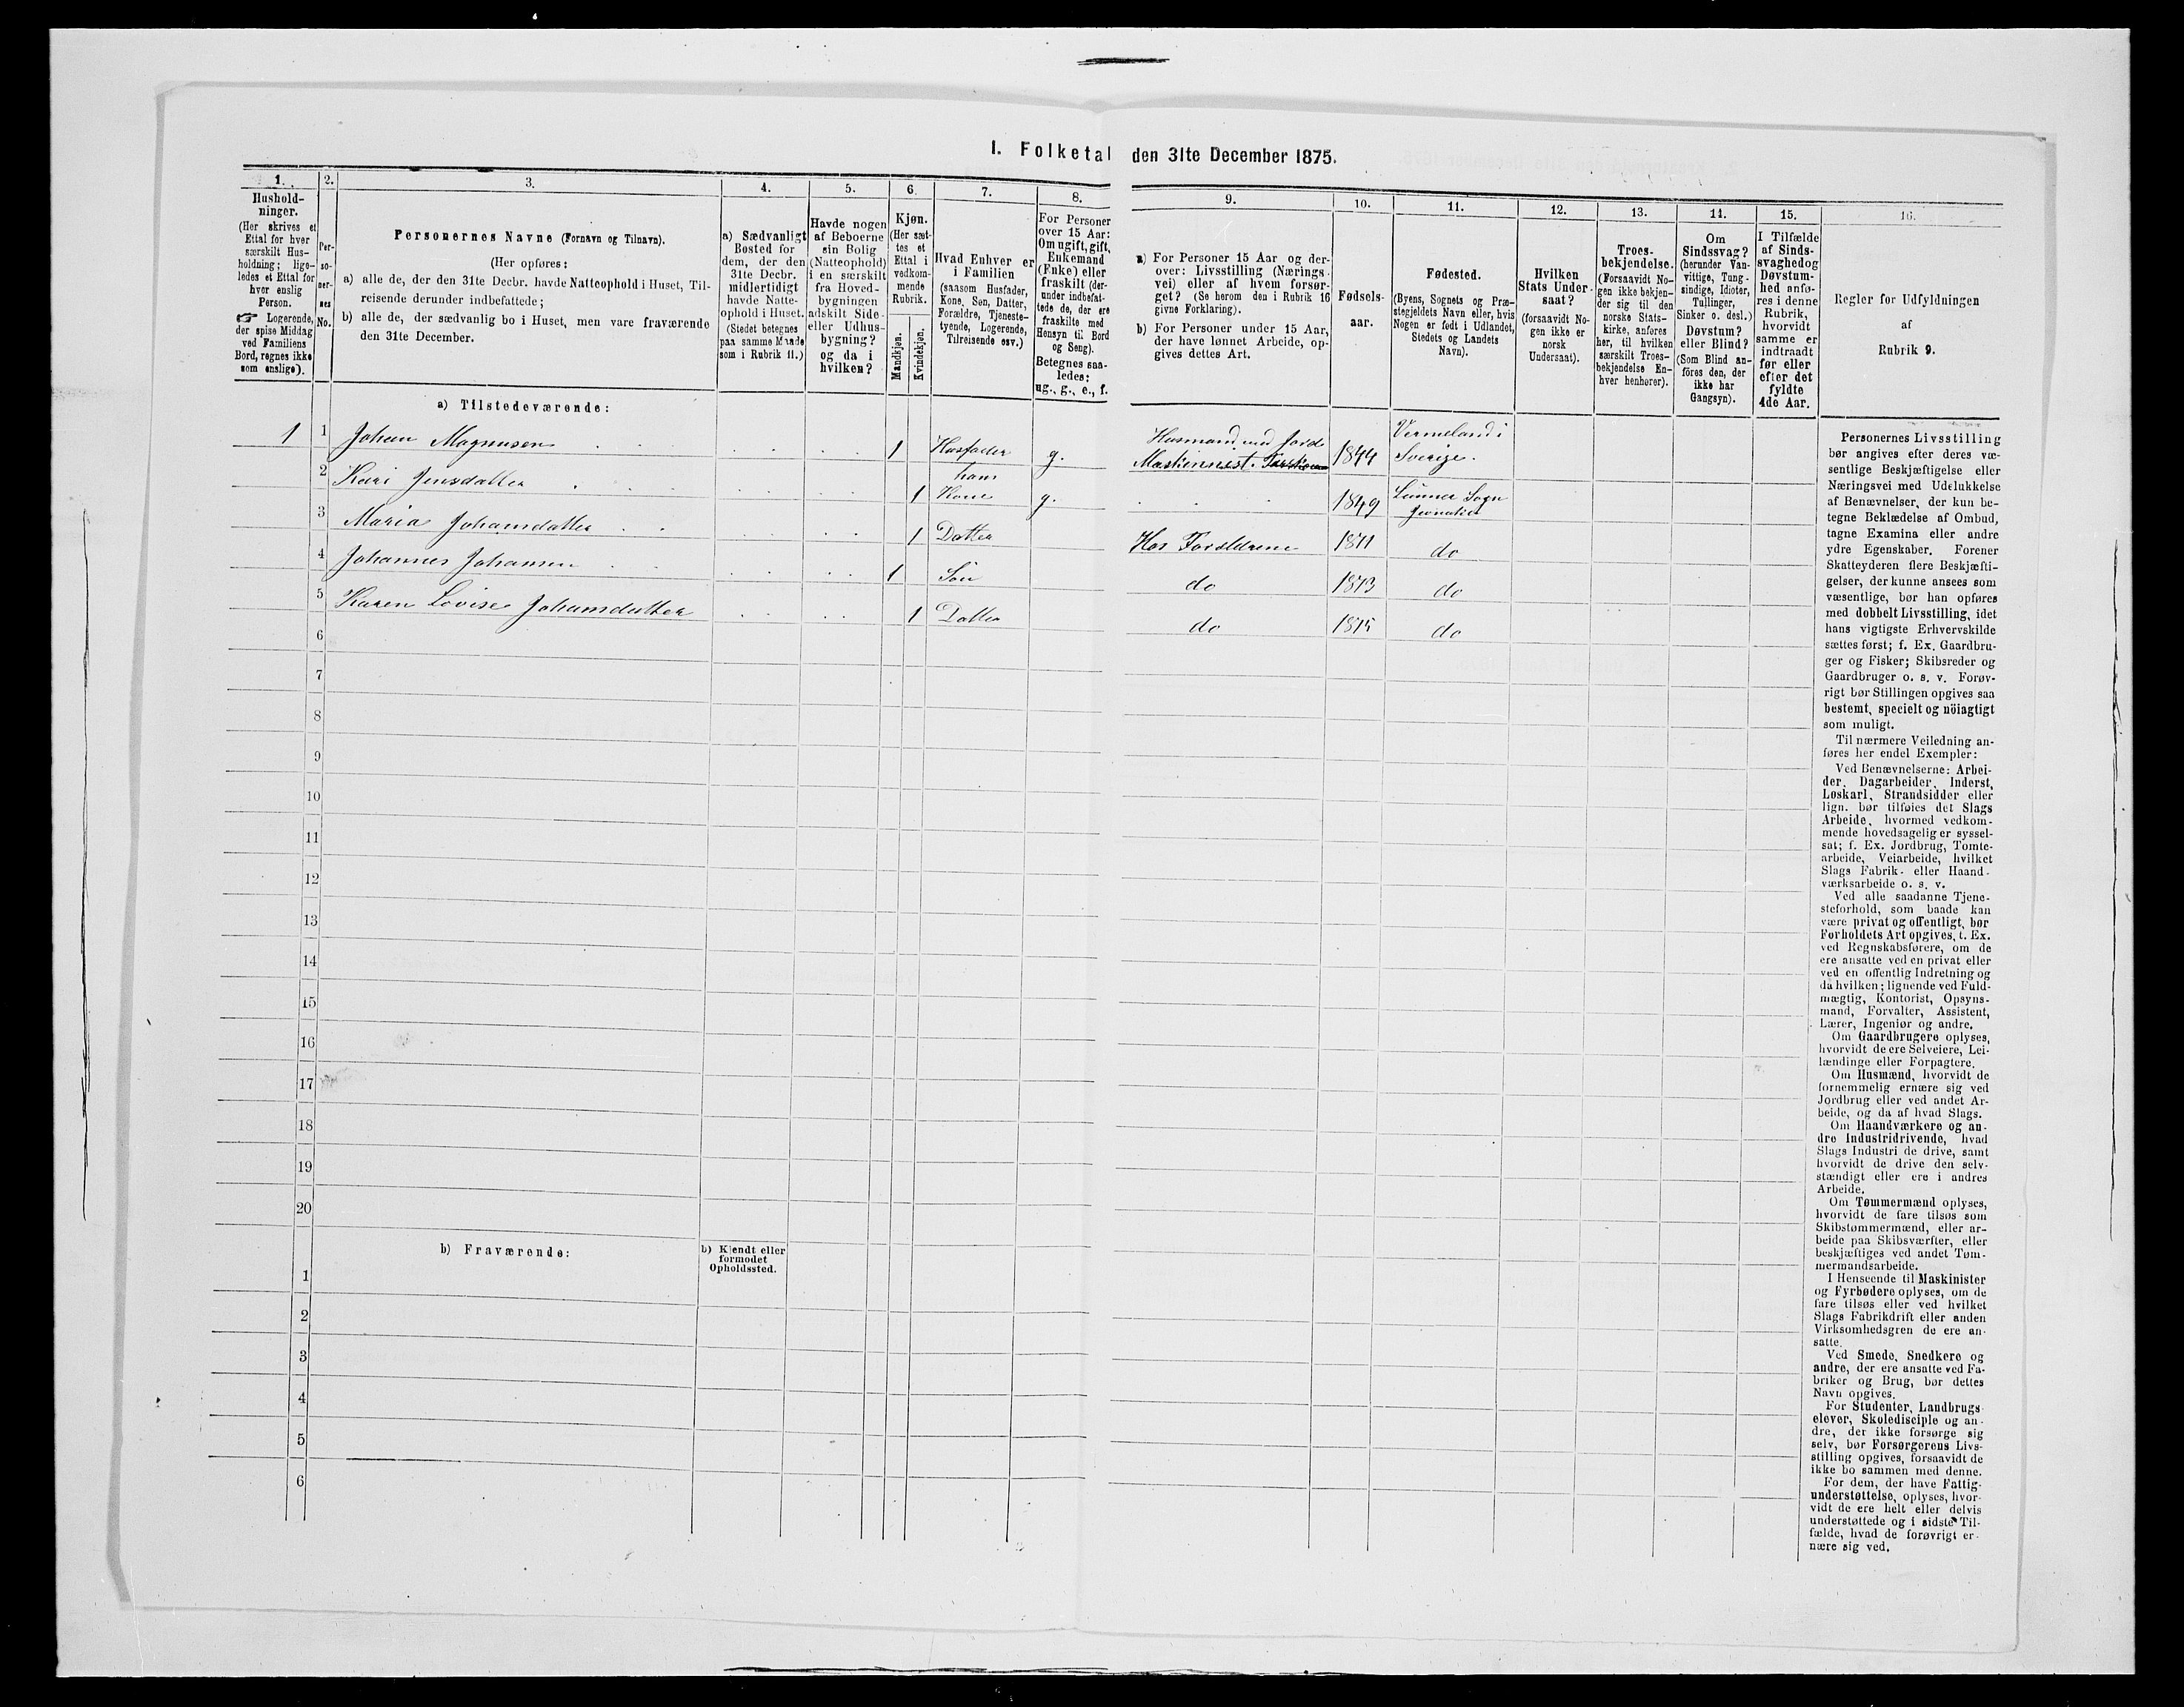 I. Folketal den 31te December 1875.
1.
Hushold-
ninger.
(Her skrives et
Ettal for hver
særskilt Hus-
holdning; lige-
ledes et Ettal for
hver enslig
Person.
☞ Logerende,
der spise Middag
ved Familiens
Bord, regnes ikke
som enslige).
2.
Per-
so-
ner-
nes
No.
3.
Personernes Navne (Fornavn og Tilnavn).
(Her opføres:
a) alle de, der den 31te Decbr. havde Natteophold i Huset, Til-
reisende derunder indbefattede;
b) alle de, der sædvanlig bo i Huset, men vare fraværende
den 31te December.
4.
a) Sædvanligt
Bosted for
dem, der den
31te Decbr.
midlertidigt
havde Natte-
ophold i Huset.
(Stedet betegnes
paa samme Maade
som i Rubrik 11.)
5.
Havde nogen
af Beboerne
sin Bolig
(Natteophold)
i en særskilt
fra Hoved-
bygningen
adskilt Side-
eller Udhus-
bygning?
og da i
hvilken?
6.
Kjøn.
(Her sæt-
tes et
Ettal i
vedkom-
mende
Rubrik.
Mandkjøn.
Kvindekjøn.
7.
Hvad Enhver er
i Familien
(saasom Husfader,
Kone, Søn, Datter,
Forældre, Tjeneste-
tyende, Logerende,
Tilreisende osv.)
8.
For Personer
over 15 Aar:
Om ugift, gift,
Enkemand
(Enke) eller
fraskilt (der-
under indbefat-
tede de, der ere
fraskilte med
Hensyn til Bord
og Seng).
Betegnes saa-
ledes:
ug., g., e., f.
9.
a) For Personer 15 Aar og der-
over: Livsstilling (Nærings-
vei) eller af hvem forsør-
get? (Se herom den i Rubrik 16
givne Forklaring).
b) For Personer under 15 Aar,
der have lønnet Arbeide, op-
gives dettes Art.
10.
Fødsels-
aar.
11.
Fødested.
(Byens, Sognets og Præ-
stegjeldets Navn eller, hvis
Nogen er født i Udlandet,
Stedets og Landets
Navn).
12.
Hvilken
Stats Under-
saat?
(forsaavidt No-
gen ikke er
norsk
Undersaat).
13.
Troes-
bekjendelse.
(Forsaavidt No-
gen ikke bekjen-
der sig til den
norske Stats-
kirke, anføres
her, til hvilken
særskilt Troes-
bekjendelse En-
hver henhører).
14.
Om
Sindssvag?
(herunder Van-
vittige, Tung-
sindige, Idioter,
Tullinger,
Sinker o. desl.)
Døvstum?
eller Blind?
(Som Blind an-
føres den, der
ikke har
Gangsyn).
15.
I Tilfælde
af Sinds-
svaghed og
Døvstum-
hed anfø-
res i denne
Rubrik,
hvorvidt
samme er
indtraadt
før eller
efter det
fyldte
4de Aar.
16.
Regler for Udfyldningen
af
Rubrik 9.
a) Tilstedeværende:
1 1 Johan Magnusen 1 Husfader g. Husmand med Jord Maskinnist. 1844 Vermeland i Sverige.
2 Kari Jensdatter 1 hans Kone g. 1849 Lunner Sogn Jevnaker
3 Maria Johansdatter 1 Datter Hos Forældrene 1871 do
4 Johannes Johansen 1 Søn do 1873 do
5 Karen Lovise Johansdatter 1 Datter do 1875 do
6
7
8
9
10
11
12
13
14
15
16
17
18
19
20
b) Fraværende:
b) Kjendt eller
formodet
Opholdssted.
1
2
3
4
5
6
Personernes Livsstilling
bør angives efter deres væ-
sentlige Beskjæftigelse eller
Næringsvei med Udelukkelse
af Benævnelser, der kun be-
tegne Beklædelse af Ombud,
tagne Examina eller andre
ydre Egenskaber. Forener
Skatteyderen flere Beskjæfti-
gelser, der kunne ansees som
væsentlige, bør han opføres
med dobbelt Livsstilling, idet
hans vigtigste Erhvervskilde
sættes først; f. Ex. Gaardbru-
ger og Fisker; Skibsreder og
Gaardbruger o. s. v. Forøv-
rigt bør Stillingen opgives saa
bestemt, specielt og nöiagtigt
som muligt.
Til nærmere Veiledning an-
føres her endel Exempler:
Ved Benævnelserne: Arbei-
der, Dagarbeider, Inderst,
Løskarl, Strandsidder eller
lign. bør tilføies det Slags
Arbeide, hvormed vedkom-
mende hovedsagelig er syssel-
sat; f. Ex. Jordbrug, Tomte-
arbeide, Veiarbeide, hvilket
Slags Fabrik- eller Haand-
værksarbeide o. s. v.
Ved alle saadanne Tjene-
steforhold, som baade kan
være privat og offentligt, bør
Forholdets Art opgives, t. Ex.
ved Regnskabsførere, om de
ere ansatte ved en privat eller
ved en offentlig Indretning og
da hvilken; lignende ved Fuld-
mægtig, Kontorist, Opsyns-
mand, Forvalter, Assistent,
Lærer, Ingeniør og andre.
Om Gaardbrugere oplyses,
hvorvidt de ere Selveiere, Lei-
lændinge eller Forpagtere.
Om Husmænd, hvorvidt de
fornemmelig ernære sig ved
Jordbrug eller ved andet Ar-
beide, og da af hvad Slags.
Om Haandværkere og an-
dre Industridrivende, hvad
Slags Industri de drive, samt
hvorvidt de drive den selv-
stændigt eller ere i andres
Arbeide.
Om Tømmermænd oplyses,
hvorvidt de fare tilsøs som
Skibstømmermænd, eller ar-
beide paa Skibsværfter, eller
beskjæftiges ved andet Tøm-
mermandsarbeide.
I Henseende til Maskinister
og Fyrbødere oplyses, om de
fare tilsøs eller ved hvilket
Slags Fabrikdrift eller anden
Virksomhedsgren de ere an-
satte.
Ved Smede, Snedkere og
andre, der ere ansatte ved Fa-
briker og Brug, bør dettes
Navn opgives.
For Studenter, Landbrugs-
elever, Skoledisciple og an-
dre, der ikke forsørge sig
selv, bør Forsørgerens Livs-
stilling opgives, forsaavidt de
ikke bo sammen med denne.
For dem, der have Fattig-
understøttelse, oplyses, hvor-
vidt de ere helt eller delvis
understøttede og i sidste Til-
fælde, hvad de forøvrigt er-
nære sig ved.